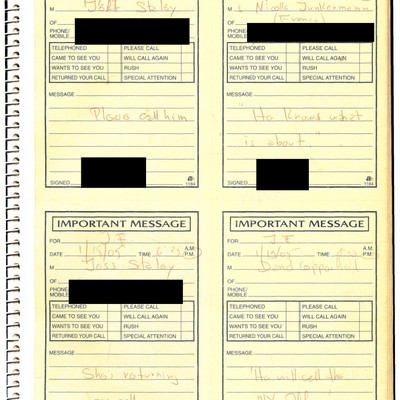 Jeff Staley
M
OF
PHONE/
MOBILE
TELEPHONED PLEASE CALL
CAME TO SEE YOU WILL CALL AGAIN
WANTS TO SEE YOU RUSH
RETURNED YOUR CALL SPECIAL ATTENTION
MESSAGE
Please call him
SIGNED
1184
M s Nicolle Junkermann
OF (France)
PHONE/
MOBILE
TELEPHONED PLEASE CALL
CAME TO SEE YOU WILL CALL AGAIN
WANTS TO SEE YOU RUSH
RETURNED YOUR CALL SPECIAL ATTENTION
MESSAGE
"He knows what
is about."
SIGNED
1184
IMPORTANT MESSAGE
FOR J.E
DATE 1/15/05 TIME A.M.
P.M.
M Jess Staley
OF
PHONE/
MOBILE
TELEPHONED PLEASE CALL
CAME TO SEE YOU WILL CALL AGAIN
WANTS TO SEE YOU RUSH
RETURNED YOUR CALL SPECIAL ATTENTION
MESSAGE
She's returning
your call
IMPORTANT MESSAGE
FOR J.E
DATE TIME A.M.
P.M.
M David
OF
PHONE/
MOBILE
TELEPHONED PLEASE CALL
CAME TO SEE YOU WILL CALL AGAIN
WANTS TO SEE YOU RUSH
RETURNED YOUR CALL SPECIAL ATTENTION
MESSAGE
"He will call the
NY Off